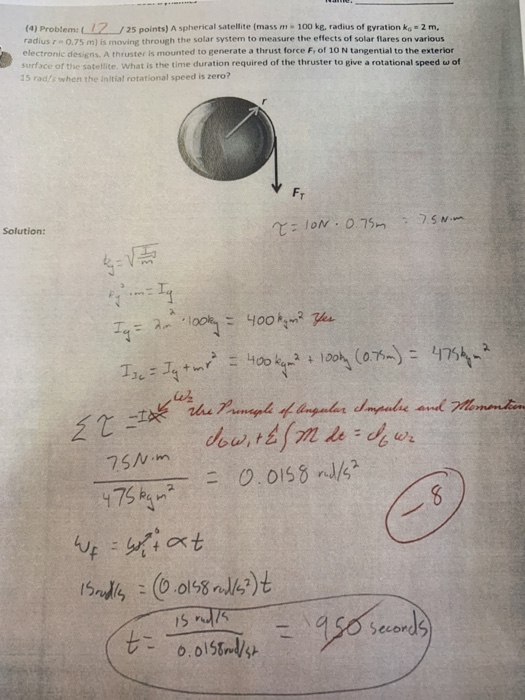 (4) Problem: ( 17 / 25 points) A spherical satellite (mass m = 100 kg, radius of gyration kG = 2 m,
radius r = 0.75 m) is moving through the solar system to measure the effects of solar flares on various
electronic designs. A thruster is mounted to generate a thrust force Ft of 10 N tangential to the exterior
surface of the satellite. What is the time duration required of the thruster to give a rotational speed ω of
15 rad/s when the initial rotational speed is zero?
r
FT
Solution:
τ = 10N · 0.75m = 7.5 N·m
kg = √(Ig/m)
kg² · m = Ig
Ig = 2m² · 100kg = 400 kgm² Yes
Ig + mr² = 400 kgm² + 100kg (0.75m) = 475kgm²
Στ = Iα
Use Principle of Angular Impulse and Momentum
ω₁ + Σ∫M dt = ω₂
7.5N·m / 475kgm² = 0.0158 rad/s²
-8
ωf = ωi + αt
15rad/s = (0.0158 rad/s²)t
t = 15 rad/s / 0.0158rad/s² = 950 seconds